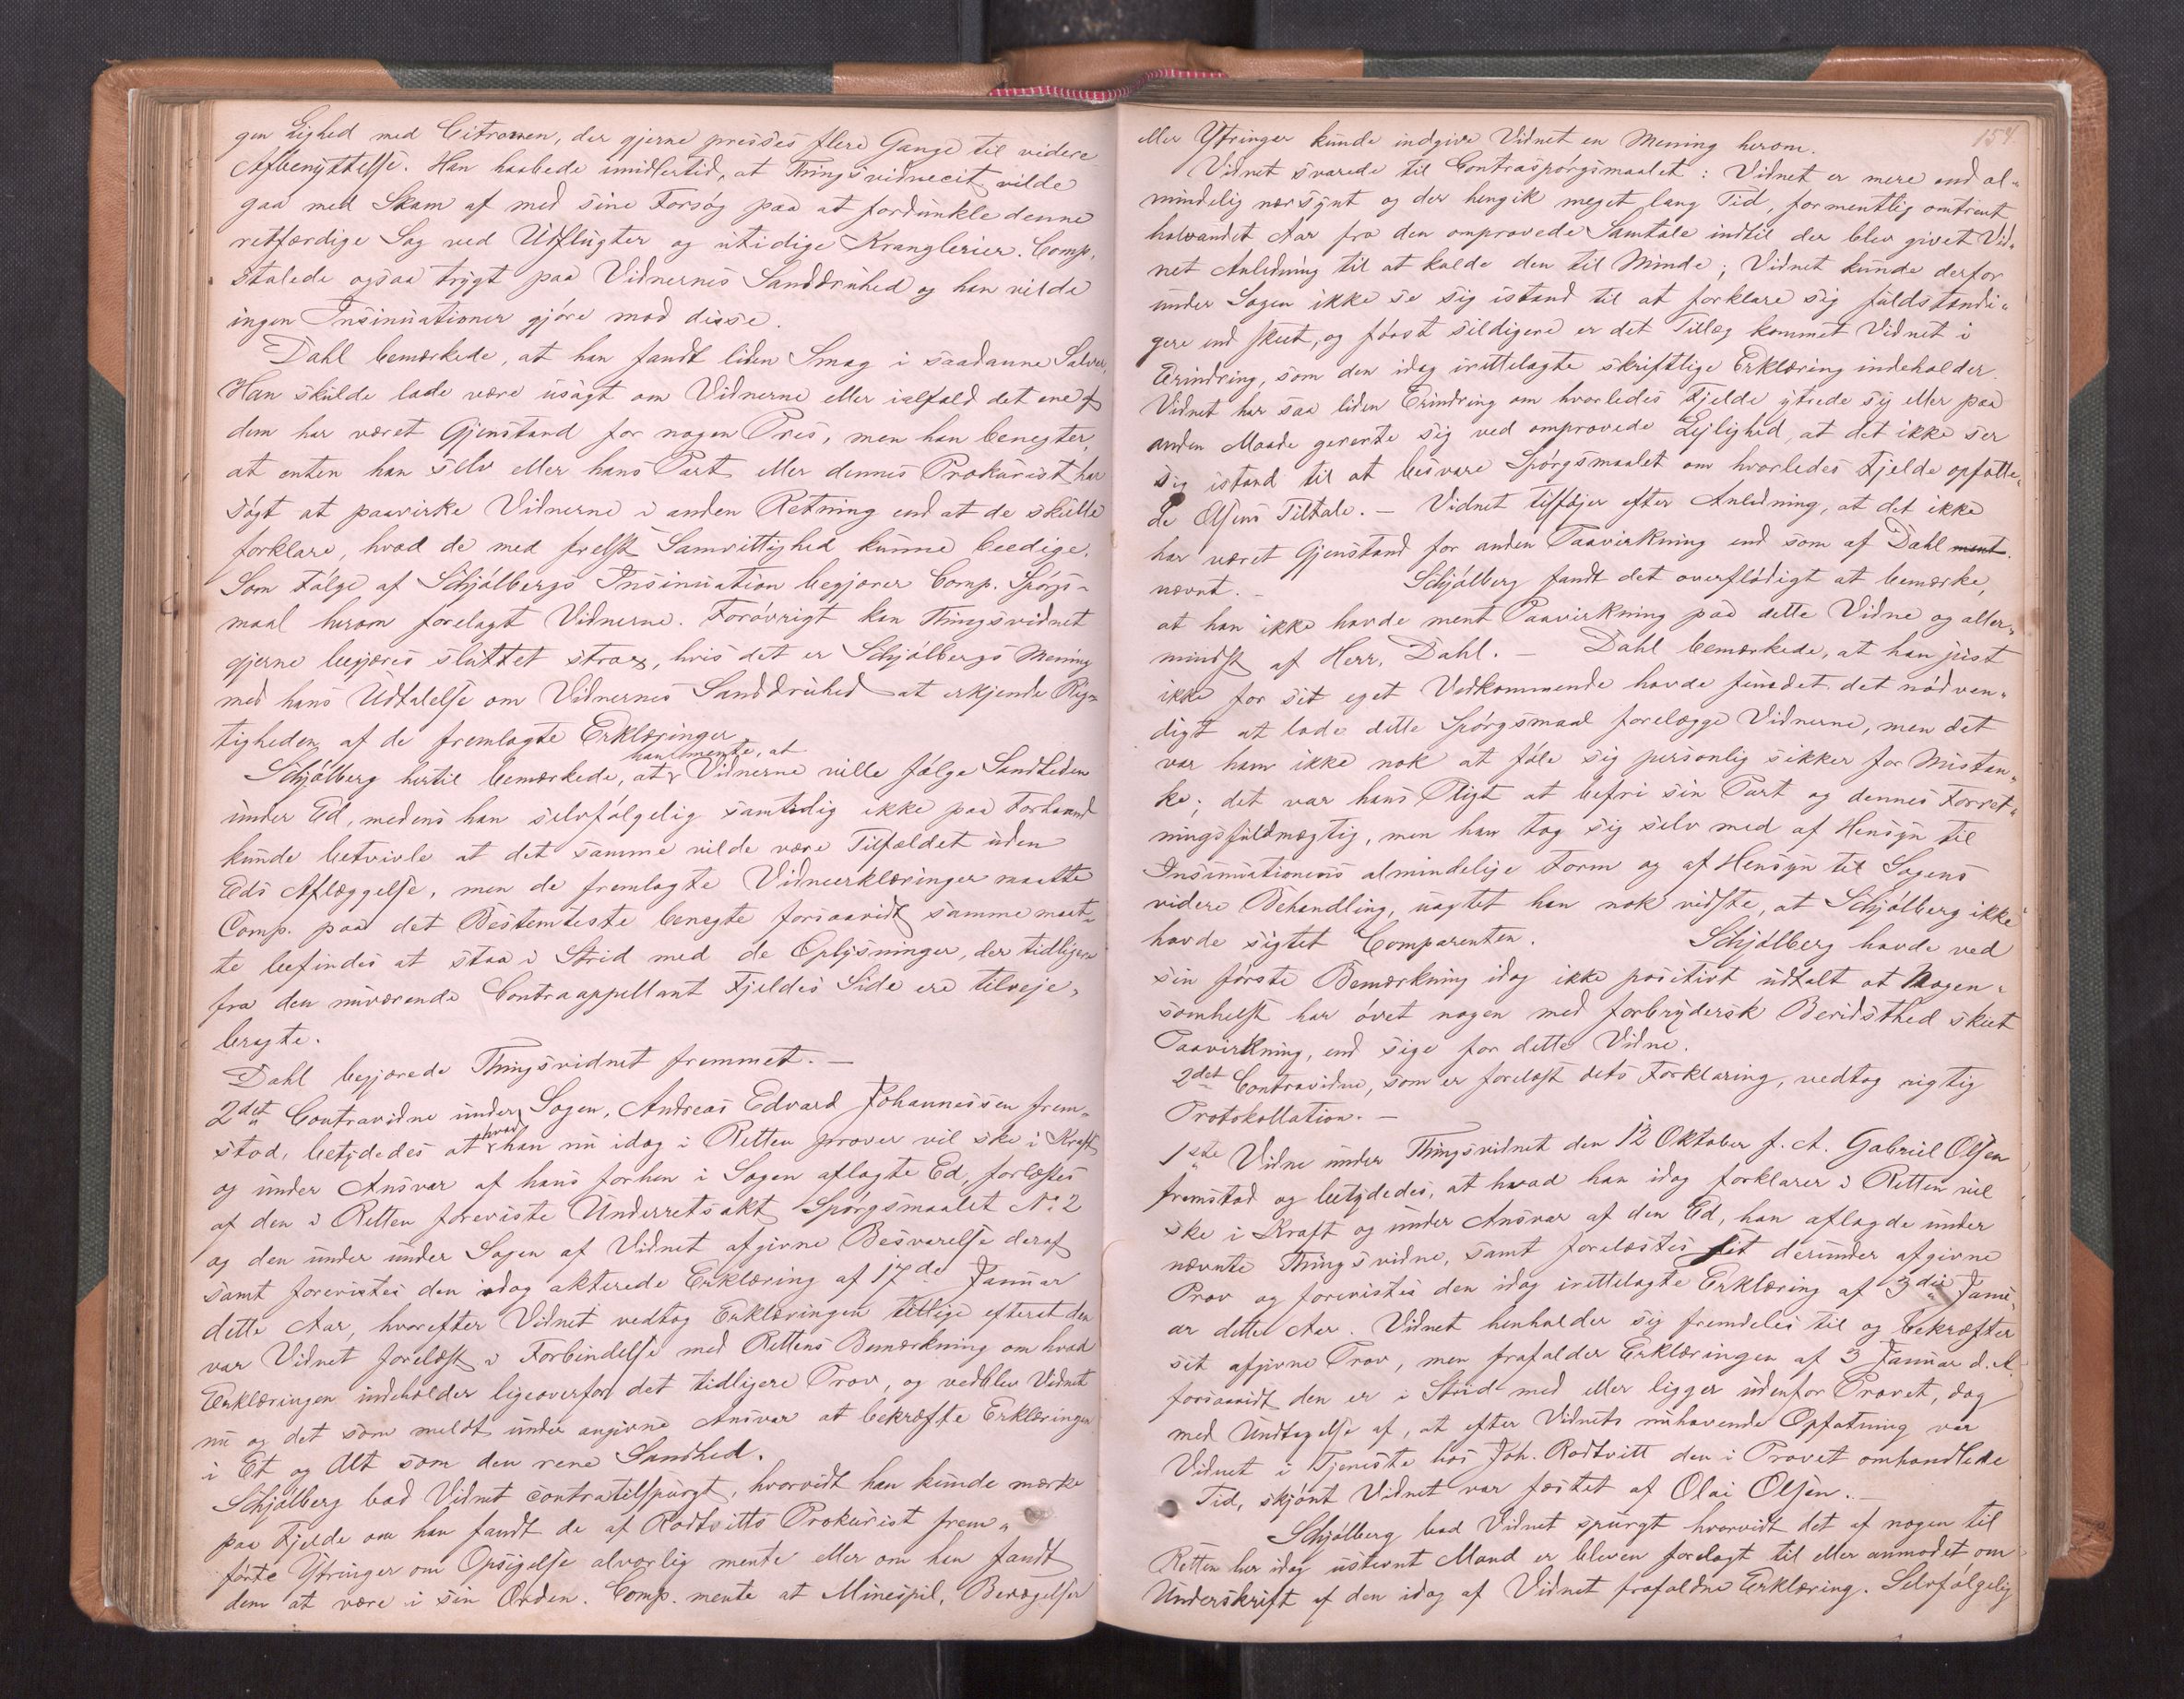 gen Lighed med Citronen, der gjerne presses flere Gange til videre
Afbenyttelse. Han haabede imidlertid, at Thingsvidnecit. vilde
gaa med Skam af med sine Forsøg paa at fordunkle denne
retfærdige Sag ved Udflugter og utidige Kranglerier. Comp.
stolede ogsaa trygt paa Vidnernes Sanddruhed og han vilde
ingen Insinuationer gjøre mod disse.
Dahl bemærkede, at han fandt liden Smag i saadanne Salver,
Han skulde lade være usagt om Vidnerne eller ialfald det ene af
dem har været Gjenstand for nogen Pres, men han benegter,
at enten han selv eller hans Part eller dennes Prokurist har
søgt at paavirke Vidnerne i anden Retning end at de skulle
forklare, hvad de med frelst Samvittighed kunne beedige.
Som Følge af Schjølbergs Insinuation begjærer Comp. Spørgs-
maal herom forelagt Vidnerne. Forøvrigt kan Thingsvidnet
gjerne begjæres sluttet strax, hvis det er Schjølbergs Mening
med hans Udtalelse om Vidnernes Sanddruhed at erkjende Rig-
tigheden af de fremlagte Erklæringer
han mente, at
Schjølberg hertil bemærkede, at Vidnerne ville følge Sandheden
under Ed, medens han selvfølgelig samtidig ikke paa Forhaand
kunde betvivle at det samme vilde være Tilfældet uden
Eds Aflæggelse, men de fremlagte Vidneerklæringer maatte
Comp. paa det Bestemteste benegte forsaavidt samme maat-
te befindes at staa i Strid med de Oplysninger, der tidligere
fra den nuværende Contraappellant Fjeldes Side ere tilveje-
bragte.
Dahl begjærede Thingsvidnet fremmet. —
2det Contravidne under Sagen, Andreas Edvard Johannessen frem-
hvad
stod, betydedes at han nu idag i Retten prover vil ske i Kraft
og under Ansvar af hans forhen i Sagen aflagte Ed, forlæstes
af den i Retten foreviste Underretsakt Spørgsmaalet No 2
og den under under Sagen af Vidnet afgivne Besvarelse deraf
samt forevistes den idag akterede Erklæring af 17de Januar
dette Aar, hvorefter Vidnet vedtog Erklæringen tillige efterat den
var Vidnet forelæst i Forbindelse med Rettens Bemærkning om hvad
Erklæringen indeholder ligeoverfor det tidligere Prov, og vedblev Vidnet
nu og det som meldt under angivne Ansvar at bekræfte Erklæringen
i Et og Alt som den rene Sandhed.
Schjølberg bad Vidnet contratilspurgt, hvorvidt han kunde mærke
paa Fjelde om han fandt de af Rodtvitts Prokurist frem-
førte Ytringer om Opsigelse alvorlig mente eller om han fandt
dem at være i sin Orden. Comp. mente at Minespil, Bevægelser
154
eller Ytringer kunde indgive Vidnet en Mening herom.
Vidnet svarede til Contraspørgsmaalet: Vidnet er mere end al-
mindelig nærsynt og der hengik meget lang Tid, formentlig omtrent
halvandet Aar fra den omprovede Samtale indtil der blev givet Vid-
net Anledning til at kalde den til Minde; Vidnet kunde derfor
under Sagen ikke se sig istand til at forklare sig fuldstændi-
gere end skeet, og først sildigere er det Tillæg kommet Vidnet i
Erindring, som den idag irettelagte skriftlige Erklæring indeholder.
Vidnet har saa liden Erindring om hvorledes Fjelde ytrede sig eller paa
anden Maade gererte sig ved omprovede Lejlighed, at det ikke ser
sig istand til at besvare Spørgsmaalet om hvorledes Fjelde opfatte-
de Olsens Tiltale. — Vidnet tilføjer efter Anledning, at det ikke
har været Gjenstand for anden Paavirkning end som af Dahl ment
nævnt. — Schjølberg fandt det overflødigt at bemærke,
at han ikke havde ment Paavirkning paa dette Vidne og aller-
mindst af Herr. Dahl. — Dahl bemærkede, at han just
ikke for sit eget Vedkommende havde fundet det nødven-
digt at lade dette Spørgsmaal forelægge Vidnerne, men det
var ham ikke nok at føle sig personlig sikker for Mistan-
ke; det var hans Pligt at befri sin Part og dennes Forret-
ningsfuldmægtig, men han tog sig selv med af Hensyn til
Insinuationens almindelige Form og af Hensyn til Sagens
videre Behandling, uagtet han nok vidste, at Schjølberg ikke
havde sigtet Comparenten. Schjølberg havde ved
sin første Bemærkning idag ikke positivt udtalt at Nogen-
somhelst har øvet nogen med forbrydersk Bevidsthed skeet
Paavirkning, end sige for dette Vidne.
2det Contravidne, som er forelæst dets Forklaring, vedtog rigtig
Protokollation. —
1ste Vidne under Thingsvidnet den 12 Oktober f. A. Gabriel Olsen
fremstod og betydedes, at hvad han idag forklarer i Retten vil
ske i Kraft og under Ansvar af den Ed, han aflagde under
nævnte Thingsvidne, samt forelæstes sit derunder afgivne
Prov og forevistes den idag irettelagte Erklæring af 3die Janu-
ar dette Aar. Vidnet henholder sig fremdeles til og bekræfter
sit afgivne Prov, men frafalder Erklæringen af 3 Januar d. A.
forsaavidt den er i Strid med eller ligger udenfor Provet, dog
med Undtagelse af, at efter Vidnets nuhavende Opfatning var
Vidnet i Tjeneste hos Joh. Rodtvitt den i Provet omhandlede
Tid, skjønt Vidnet var fæstet af Olai Olsen. —
Schjølberg bad Vidnet spurgt hvorvidt det af nogen til
Retten her idag ustevnt Mand er bleven forelagt til eller anmodet om
Underskrift af den idag af Vidnet frafaldne Erklæring. Selvfølgelig